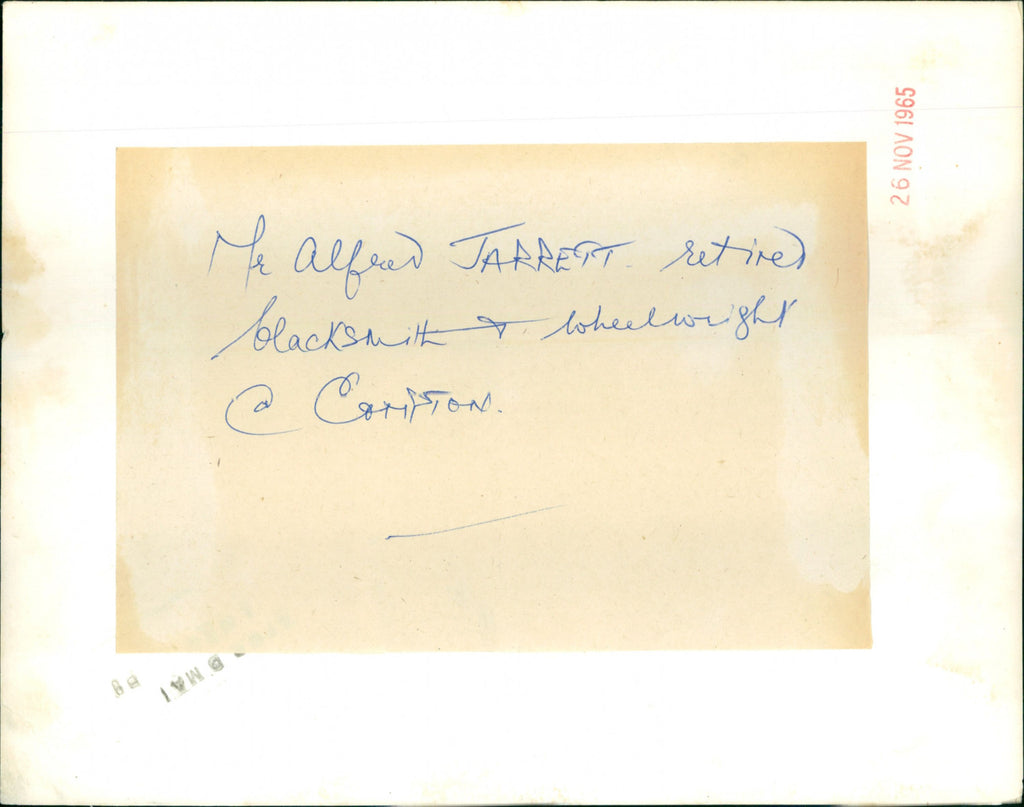 Mr Alfred JARRETT. retired
blacksmith & wheelwright
@ COMPTON.
26 NOV 1965